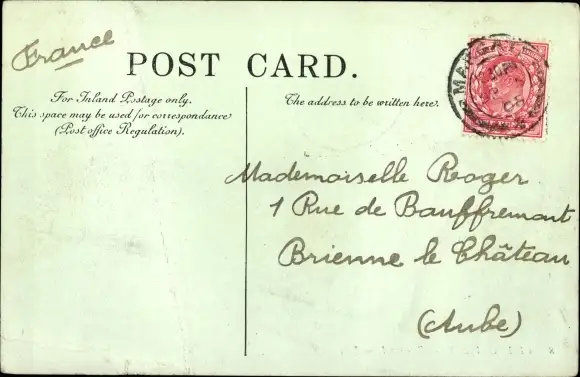 France
POST CARD.
For Inland Postage only.
This space may be used for correspondence
(Post office Regulation).
The address to be written here.
Mademoiselle Roger
1 Rue de Bauffremont
Brienne le Château
(Aube)